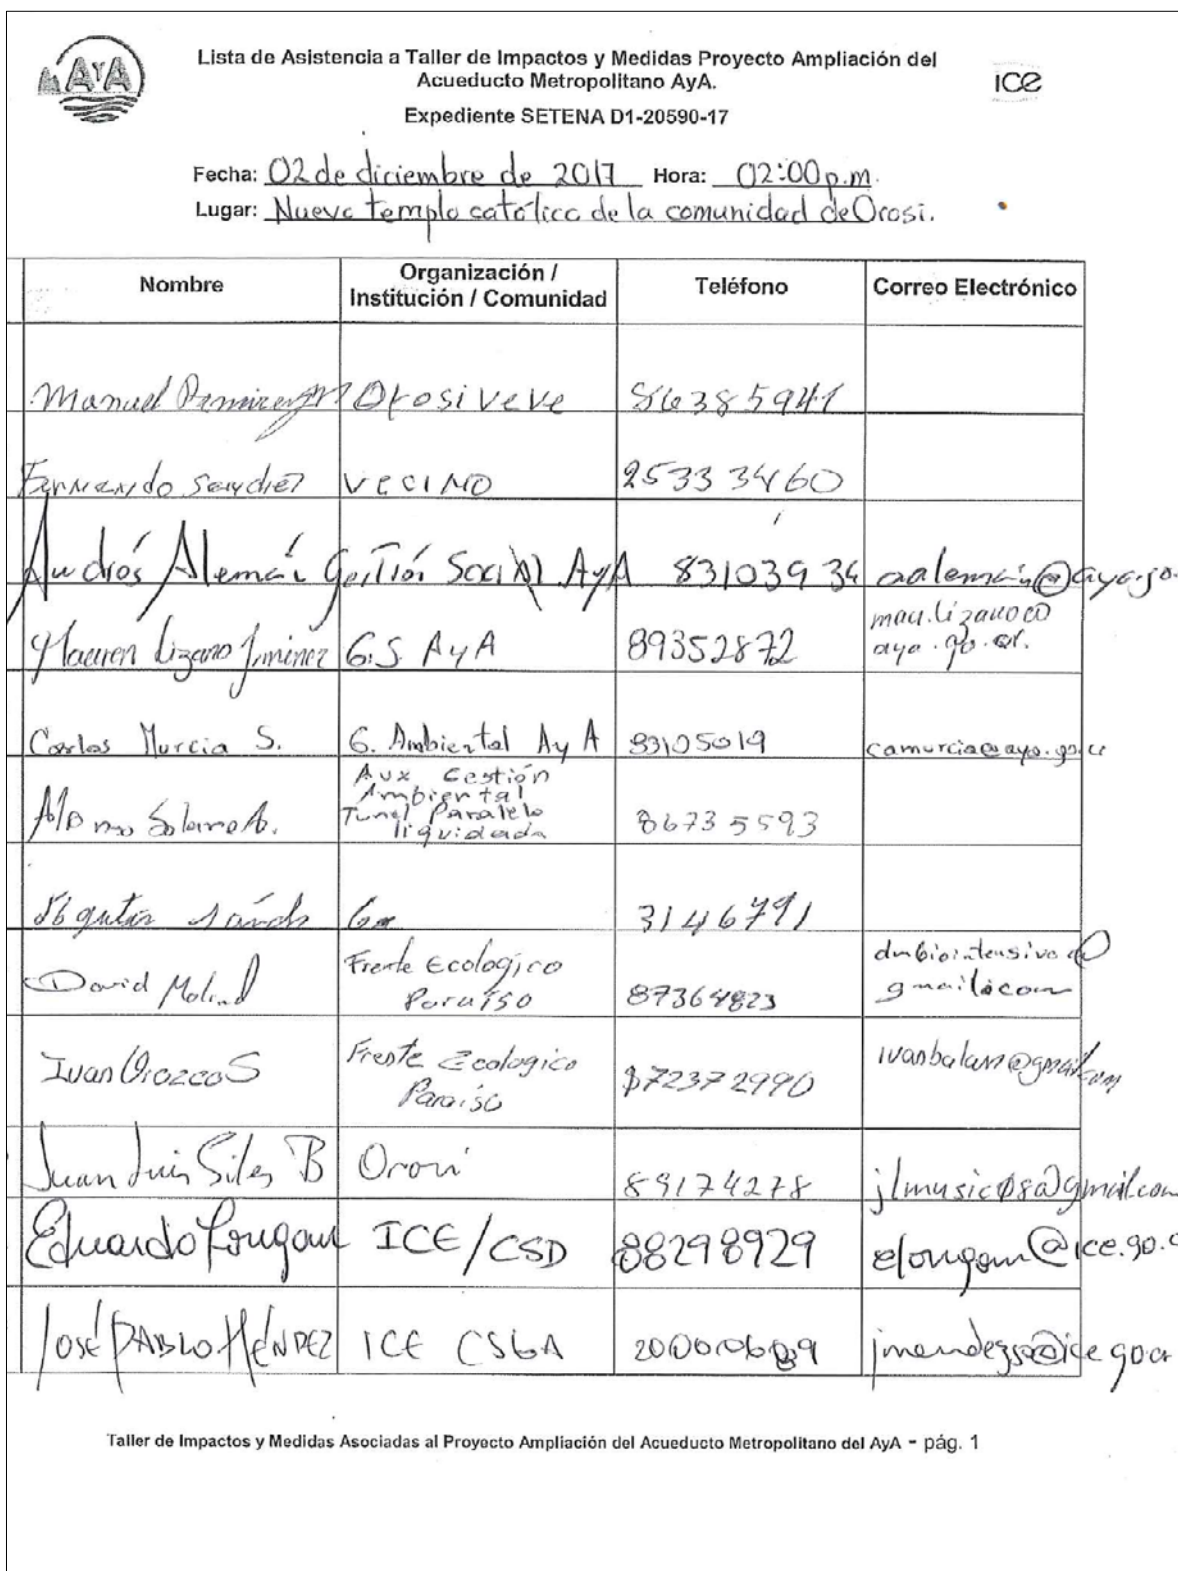 AyA
Lista de Asistencia a Taller de Impactos y Medidas Proyecto Ampliación del
Acueducto Metropolitano AyA.
ice
Expediente SETENA D1-20590-17
Fecha: 02 de diciembre de 2017 Hora: 02:00 p.m.
Lugar: Nuevo templo católico de la comunidad de Orosi.
Nombre
Organización /
Institución / Comunidad
Teléfono
Correo Electrónico
Manuel Ramirez Orosi veve 86385941
Fernando Sanchez VECINO 25333460
Andrés Alemán Gestión Social AyA 83103934 aaleman@aya.go.
Mauren Lizano Jiminez G.S AyA 89352872
mau.lizano@
aya.go.cr.
Carlos Murcia S. G. Ambiental AyA 83105019 camurcia@aya.go.cr
Alonso Solano A.
Aux Gestión
Ambiental
Tunel Paralelo
liquidada
86735593
3146791
David Molina
Frente Ecologico
Paraíso
87364823
dmbiointensivo@
gmail.com
Ivan Orozco S
Frente Ecologico
Paraiso
872372990
ivanbalam@gmail.com
Juan Luis Siles B Orosi 89174278 jlmusic08@gmail.com
Eduardo ICE/CSD 88298929 @ice.go.c
JOSÉ PABLO MÉNDEZ ICE CSGA jmendezs@ice.go.cr
Taller de Impactos y Medidas Asociadas al Proyecto Ampliación del Acueducto Metropolitano del AyA - pág. 1